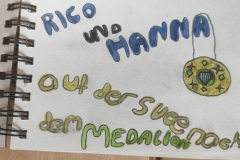 RICO
UND
HANNA
auf der SUCE NACH
dem MEDALION